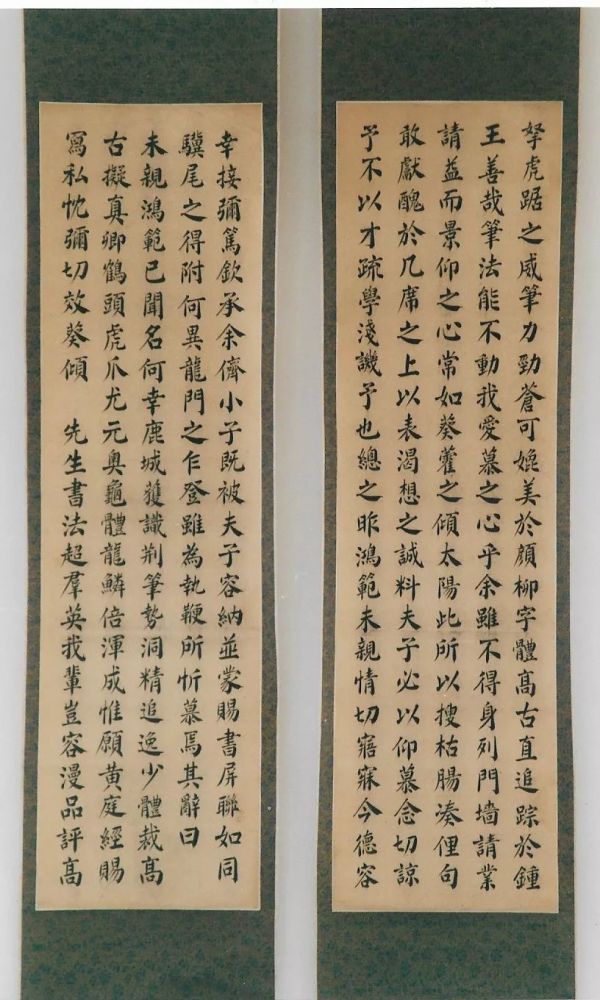 孥虎踞之威筆力勁蒼可媲美於顔柳字體高古直追踪於鍾
王善哉筆法能不動我愛慕之心乎余雖不得身列門墻請業
請益而景仰之心常如葵藿之傾太陽此所以搜枯腸湊俚句
敢獻醜於几席之上以表渴想之誠料夫子必以仰慕念切諒
予不以才疏學淺譏予也總之昨鴻範未親情切寤寐今德容
幸接彌篤欽承余儕小子既被夫子容納並蒙賜書屏聯如同
驥尾之得附何異龍門之乍登雖為執鞭所忻慕焉其辭曰
未親鴻範已聞名何幸鹿城獲識荆筆勢洞精追逸少體裁高
古擬真卿鶴頭虎爪尤元奥龜體龍鱗倍渾成惟願黃庭經賜
寫私忱彌切效葵傾　先生書法超羣英我輩豈容漫品評高